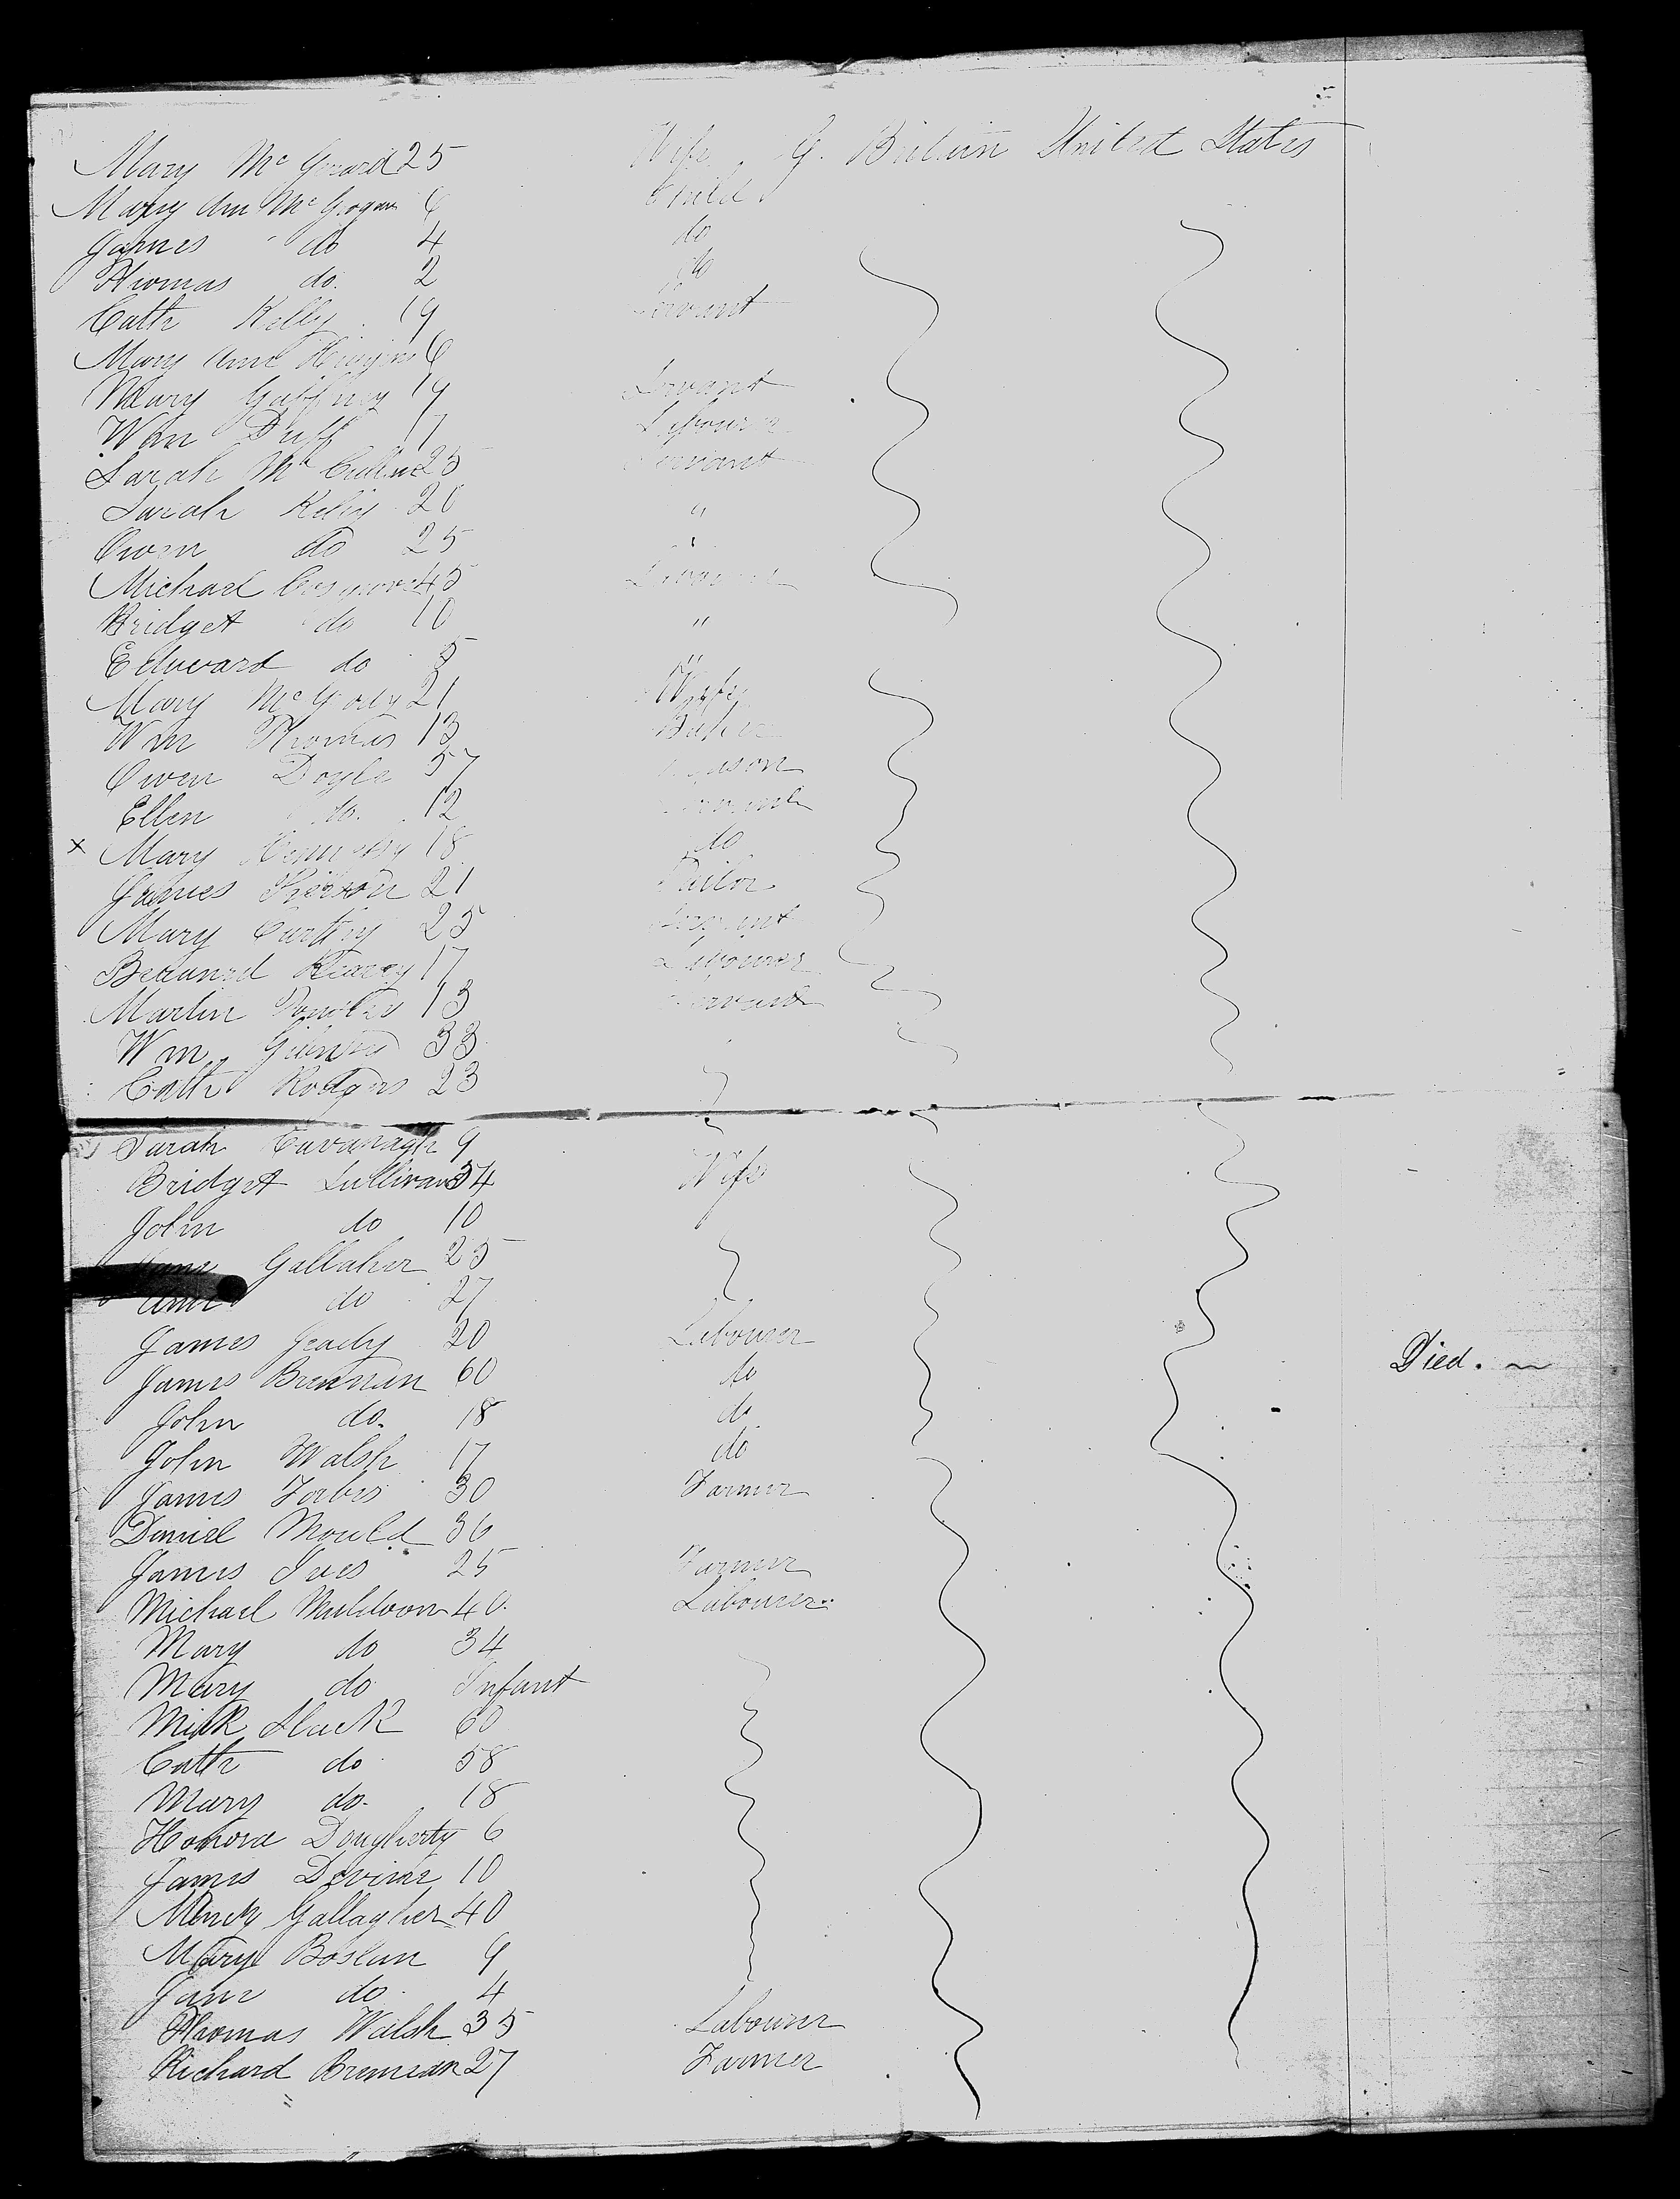 Mary Mc Gerard 25 Wife G. Britain United States
Mary Ann Mc Grogan 6 Child
James do 4 do
Thomas do. 2 do
Cath Kelly 19 Servant
Mary Ann 6
Mary Gaffney 19 Servant
Wm Duff 17 Labourer
Sarah Mc 25 Servant
Sarah 20 "
Owen do 25 "
Michael Cosgrove 45 Labourer
Bridget do 10 "
Edward do 5 "
Mary 21 Wife
Wm Thomas 13 Baker
Owen Doyle 57 Mason
Ellen do. 12 Servant
x Mary 18 do
James 21 Tailor
Mary 25 Servant
17 Labourer
Martin 13 Servant
Wm 33
Cath Rodgers 23
Sarah Cavanagh 9
Bridget Sullivan 34 Wife
John do 10
Gallaher 25
Ann do 27
James 20 Labourer
James Brennan 60 do Died.
John do. 18 do
John Walsh 17 do
James Forbes 30 Farmer
Daniel Mould 36
James Ives 25 Farmer
Michael Muldoon 40. Labourer
Mary do 34
Mary do Infant
Slack 60
Cath do 58
Mary do. 18
Honora Dougherty 6
James Devine 10
Gallagher 40
Mary Boslan 9
Jane do. 4
Thomas Walsh 35 Labourer
Richard Brennan 27 Farmer